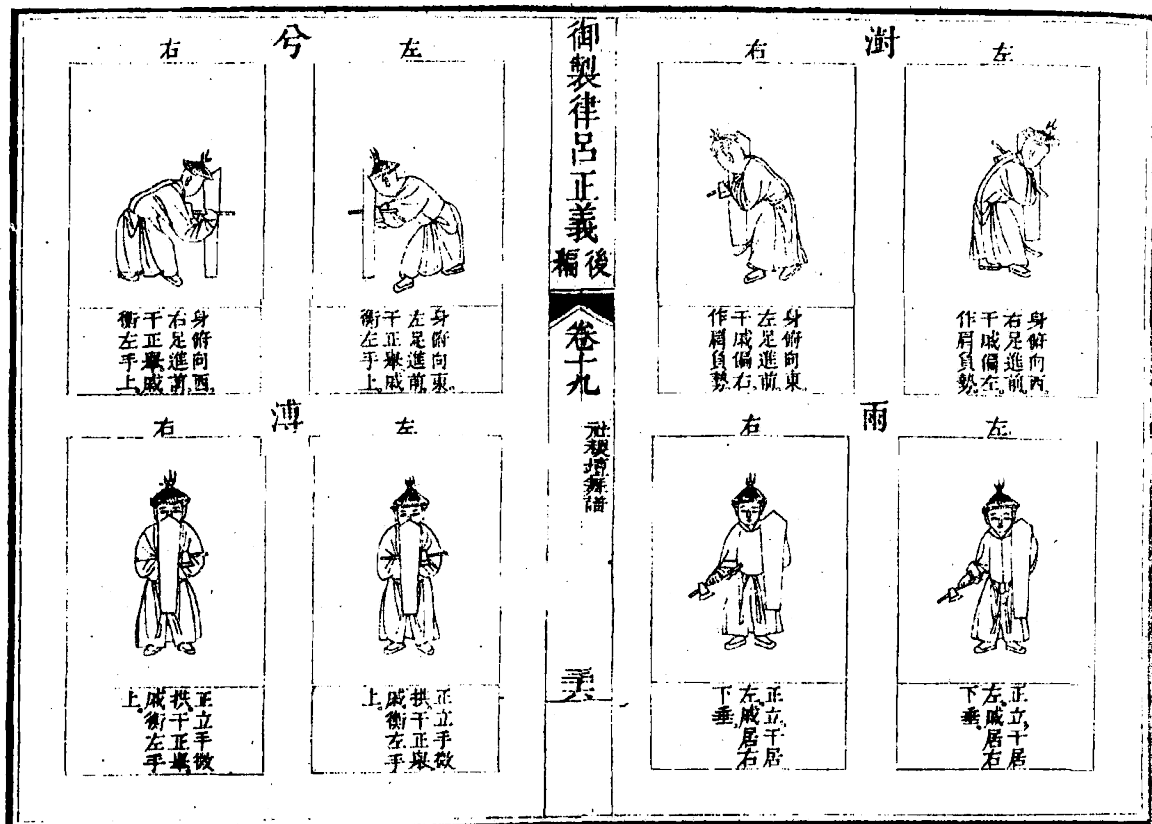 澍
左
身俯向西、
右足進前、
干戚偏左、
作肩負勢。
右
身俯向東、
左足進前、
干戚偏右、
作肩負勢。
雨
左
正立、干居
左、戚居右
下垂。
右
正立、干居
左、戚居右
下垂。
御製律呂正義後編
卷十九
社稷壇舞譜
三六
兮
左
身俯向東、
左足進前、
干正舉、戚
衡左手上。
右
身俯向西、
右足進前、
干正舉、戚
衡左手上。
溥
左
正立、手微
拱、干正舉、
戚衡左手
上。
右
正立、手微
拱、干正舉、
戚衡左手
上。